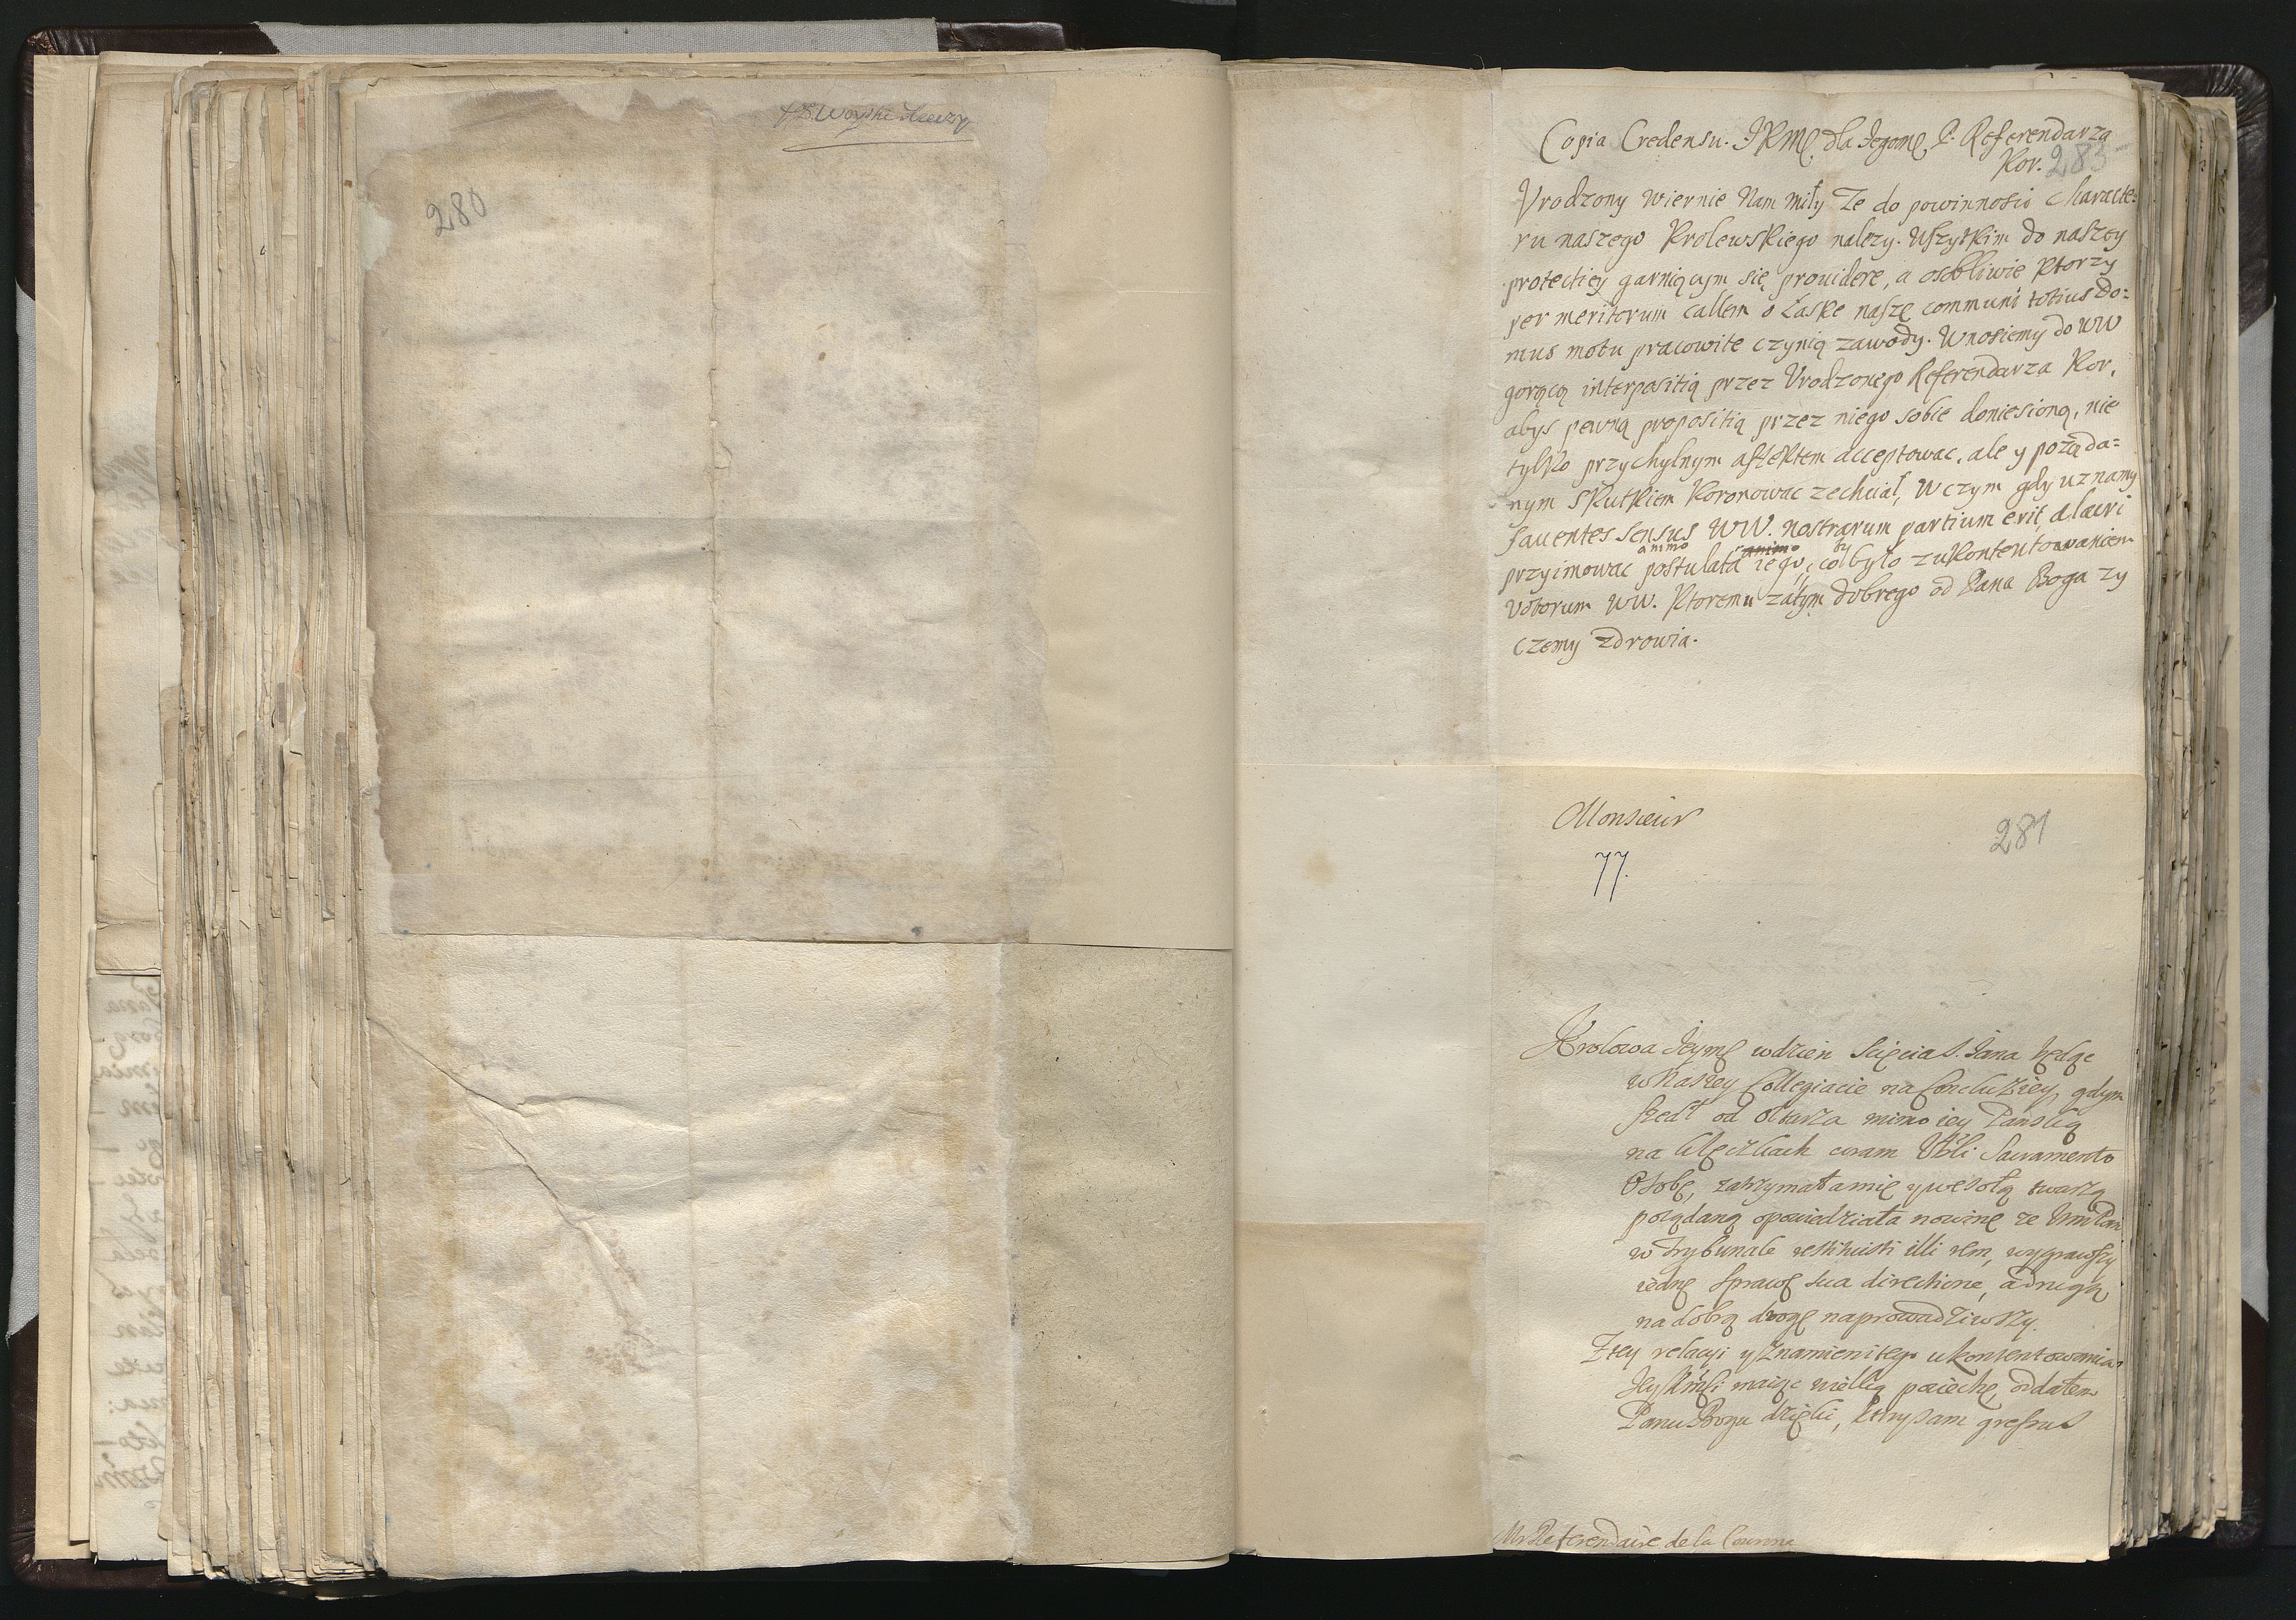 280
Copia Credensu. JKMę dla Jegomę P. Referendarza
Kor. 283
Vrodzony wiernie Nam miły Ze do powinnosci Characte-
ru naszego Krolewskiego nalezy. Wszytkim do naszey
protectiey garniącym się prouidere, a osobliwie Ktorzy
per meritorum callem o Łaske naszę communi totius Do=
mus motu pracowite czynią zawody. Wnosiemy do WW
gorącą interpositią przez Vrodzonego Referendarza Kor.
abys pewną propositią przez niego sobie doniesioną, nie
tylko przychylnym affektem acceptowac, ale y pożąda=
nym Skutkiem Koronowac zechciał, W czym gdy uznamy
fauentes sensus WW. nostrarum partium erit, alacri
animo animo by
przyimowac postulata iego, co było z ukontentowaniem
votorum WW. Ktoremu zatym dobrego od Pana Boga zy
czemy zdrowia.
Monsieur
281
77.
Krolowa Jeymę w dzien Scięcia S. Jana będąc
w Naszey Collegiacie na Concluziey, gdym
szedł od Ołtarza mimo iey Panską
na klęczkach coram Vbli Sacramento
Osobę, zatrzymała mię y wesołą twarzą
pożądaną opowiedziała nowinę ze Wm Pan
w Trybunale restituisti illi rem, wygrawszy
iednę sprawę sua directione, a drugą
na dobrą drogę naprowadziwszy.
Z tey relacyi y znamienitego ukontentowania
maiąc wielką pociechę, oddałem
Panu Bogu dzięki, gressus
Mr Referendaire de la Couronne